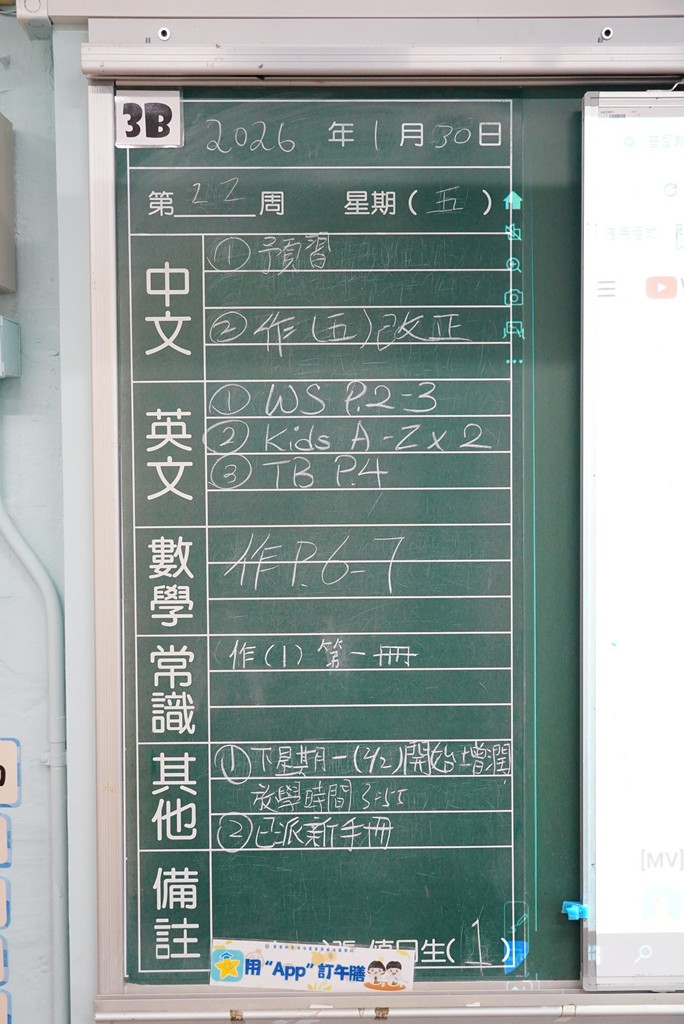 3B
2026 年 1 月 30 日
第 22 周 星期 ( 五 )
中文
① 預習
② 作(五)改正
英文
① WS P.2-3
② Kids A-Z x 2
③ TB P.4
數學
作 P.6-7
常識
作(1) 第一冊
其他
① 下星期一(2/2)開始增潤
放學時間 3:55
② 已派新手冊
備註
值日生( 1 )
用 “App” 訂午膳
[MV]